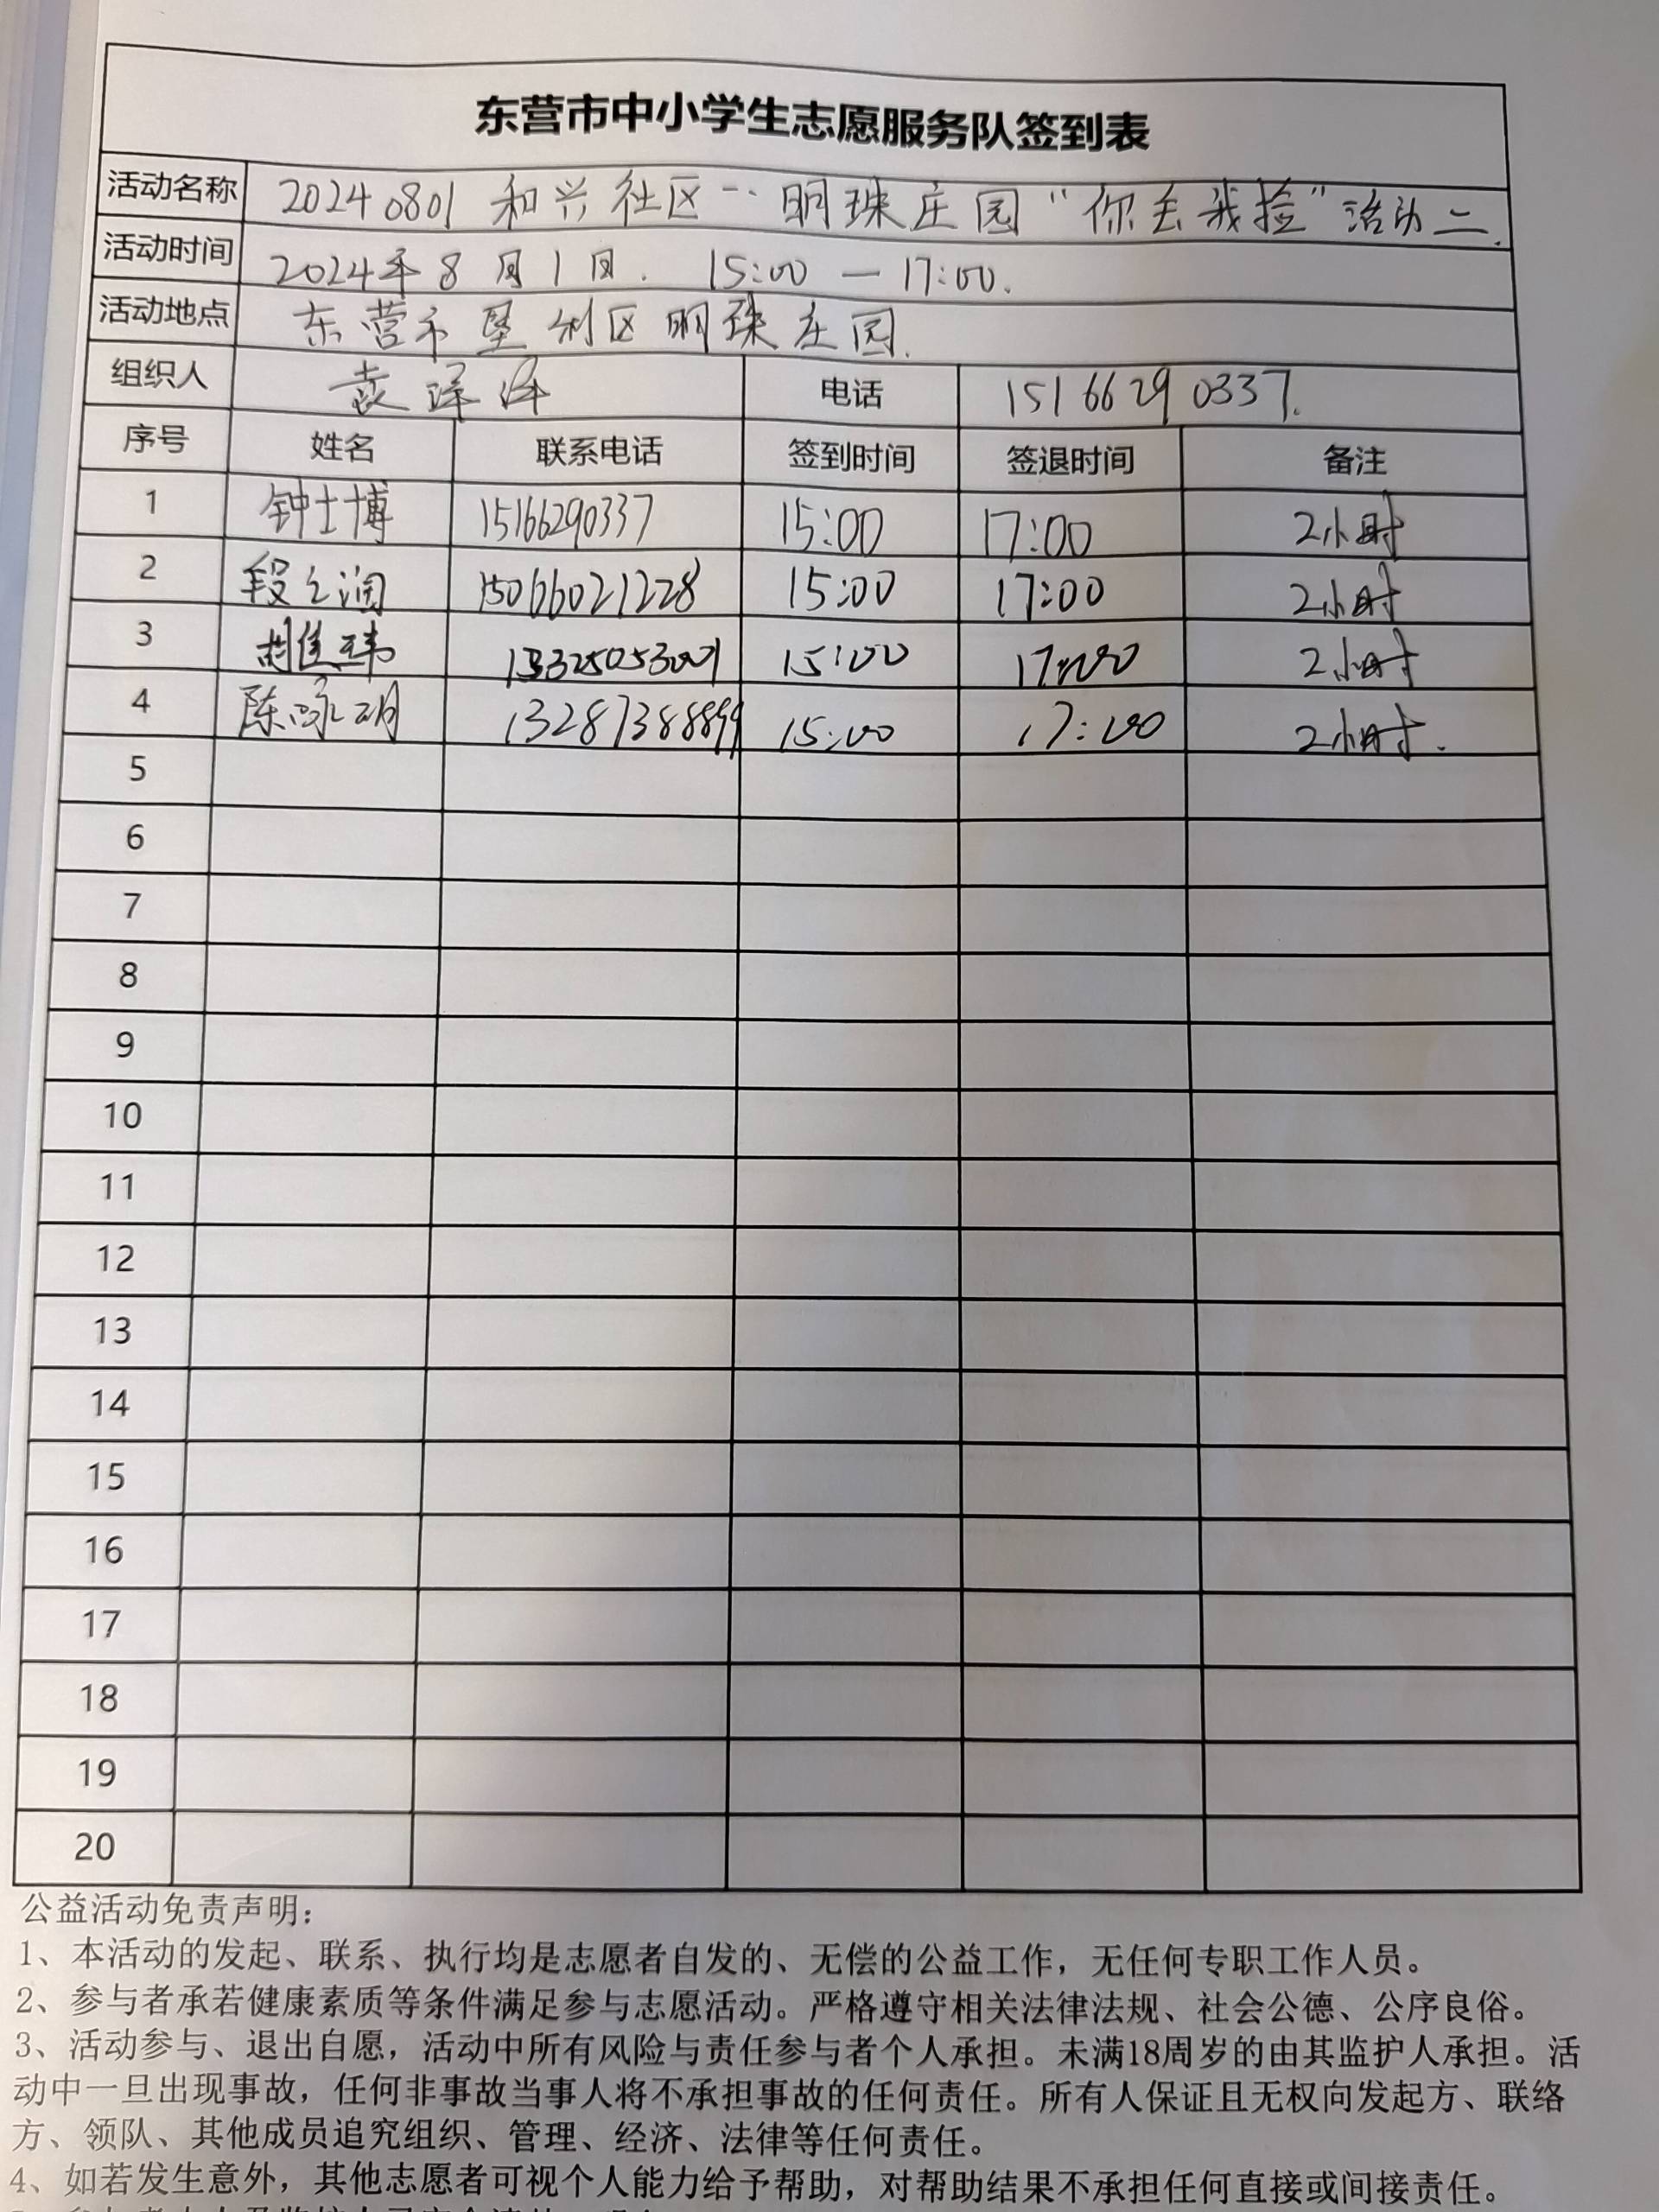 东营市中小学生志愿服务队签到表
活动名称 20240801 和兴社区--明珠庄园“你丢我捡”活动二.
活动时间 2024年8月1日. 15:00 — 17:00.
活动地点 东营市垦利区明珠庄园.
组织人 袁泽 电话 15166290337.
序号 姓名 联系电话 签到时间 签退时间 备注
1 钟士博 15166290337 15:00 17:00 2小时
2 段之润 15066021228 15:00 17:00 2小时
3 15:00 17:00 2小时
4 陈咏明 13287388899 15:00 17:00 2小时.
5
6
7
8
9
10
11
12
13
14
15
16
17
18
19
20
公益活动免责声明：
1、本活动的发起、联系、执行均是志愿者自发的、无偿的公益工作，无任何专职工作人员。
2、参与者承若健康素质等条件满足参与志愿活动。严格遵守相关法律法规、社会公德、公序良俗。
3、活动参与、退出自愿，活动中所有风险与责任参与者个人承担。未满18周岁的由其监护人承担。活
动中一旦出现事故，任何非事故当事人将不承担事故的任何责任。所有人保证且无权向发起方、联络
方、领队、其他成员追究组织、管理、经济、法律等任何责任。
4、如若发生意外，其他志愿者可视个人能力给予帮助，对帮助结果不承担任何直接或间接责任。